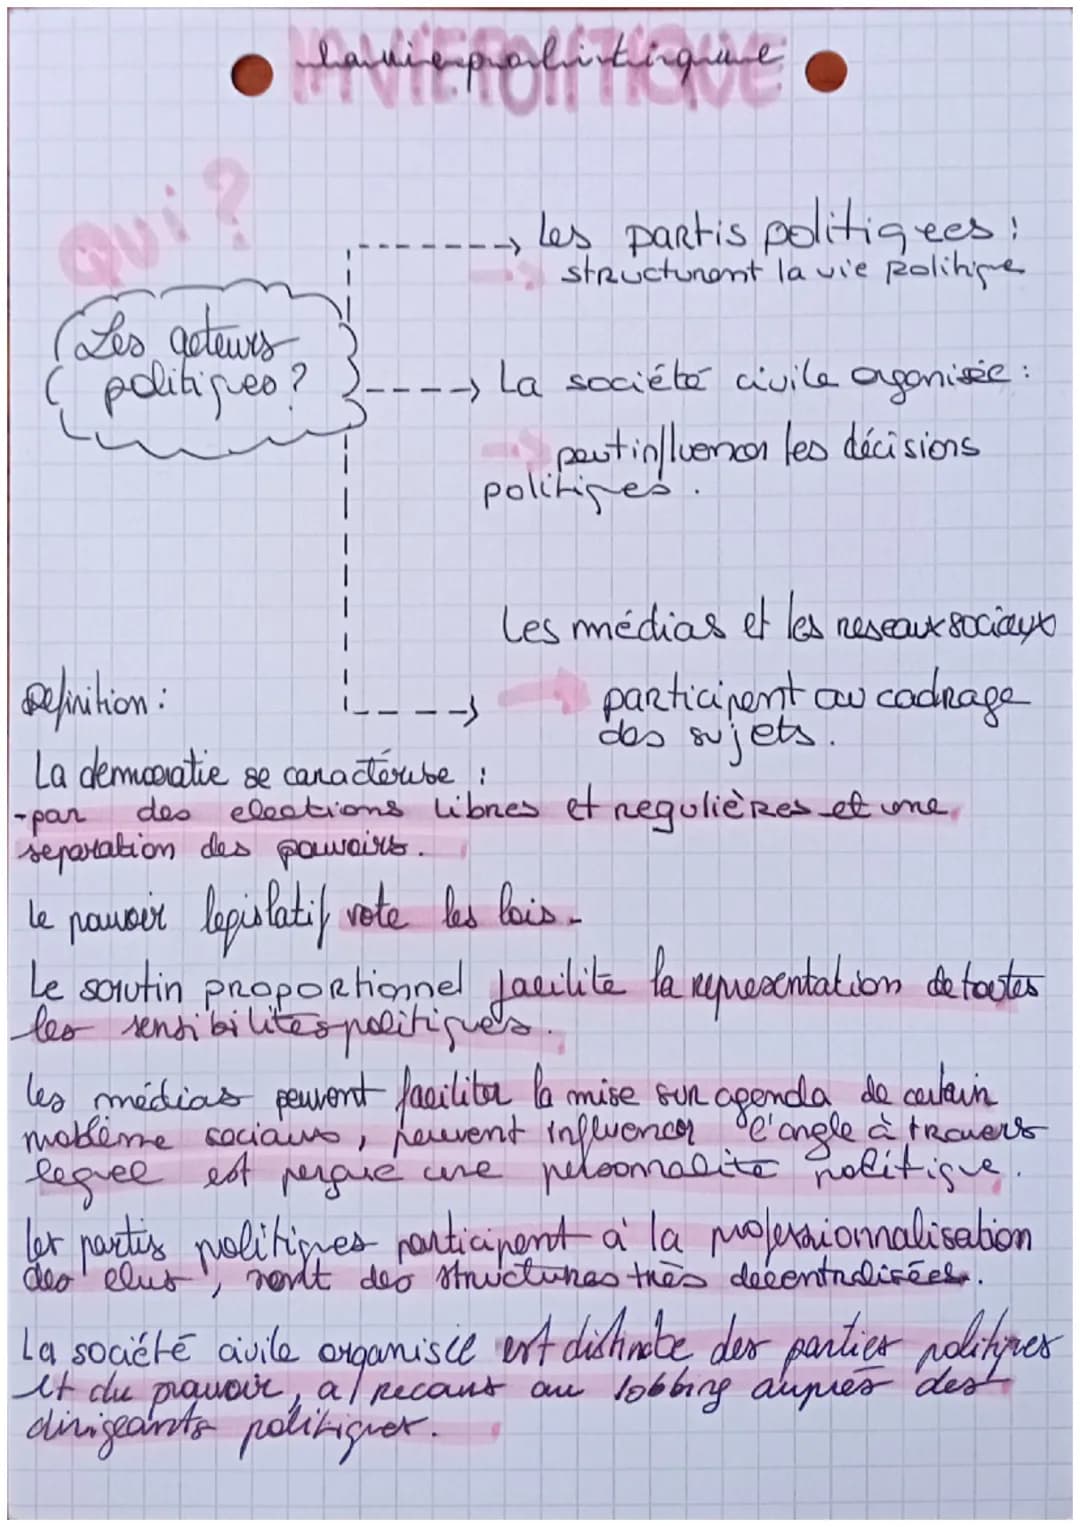 la vie politique
LA VIE POLITIQUE
Qui ?
Les acteurs
politiques ?
Les partis politiqees :
structurent la vie politique
La société civile organisée :
peut influencer les décisions
politiques.
Les médias et les reseaux sociaux
participent au cadrage
des sujets.
Définition :
La democratie se caractérise :
-par des elections libres et regulières et une
separation des pouvoirs.
le pouvoir legislatif vote les lois.
Le scrutin proportionnel facilite la representation de toutes
les sensibilités politiques.
les médias peuvent faciliter la mise sur agenda de certain
problème sociaux, peuvent influencer l'angle à travers
lequel est perçue une personnalité politique.
les partis politiques participent à la professionnalisation
des elus, sont des structures très decentralisées.
La société civile organisée est distincte des parties politiques
et du pouvoir, a recours au lobbing auprès des
dirigeants politiques.